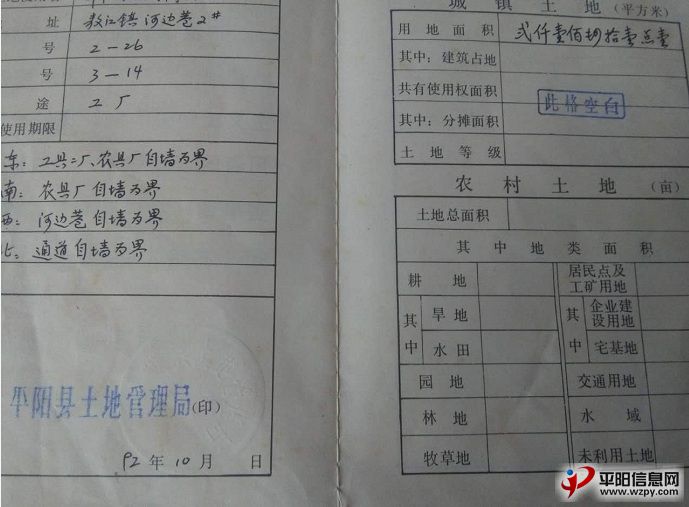 址 敖江镇河边巷2#
号 2-26
号 3-14
途 工厂
使用期限
东：工具二厂、农具厂自墙为界
南：农具厂自墙为界
西：河边巷自墙为界
北：通道自墙为界
平阳县土地管理局(印)
92年10月 日
城镇土地（平方米）
用地面积 贰仟壹佰 拾壹点壹
其中：建筑占地
共有使用权面积
此格空白
其中：分摊面积
土地等级
农村土地（亩）
土地总面积
其中地类面积
耕地
居民点及工矿用地
其中
旱地
其中
企业建设用地
水田
宅基地
园地
交通用地
林地
水域
牧草地
未利用土地
平阳信息网
www.wzpy.com